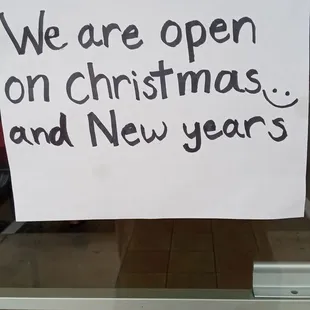 We are open
on christmas..
and New years